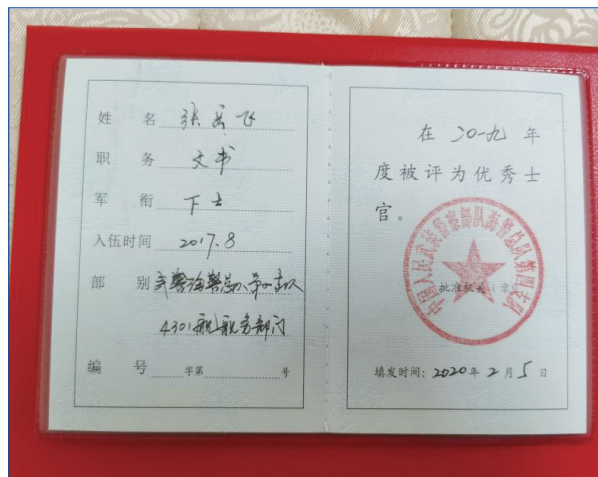 姓 名 张岳飞
职 务 文书
军 衔 下士
入伍时间 2017.8
部 别 武警海警总队第四支队
4301舰舰务部门
编 号 字第 号
在二〇一九年
度被评为优秀士
官。
中国人民武装警察部队海警总队第四支队
批准机关(章)
填发时间:2020年2月5日